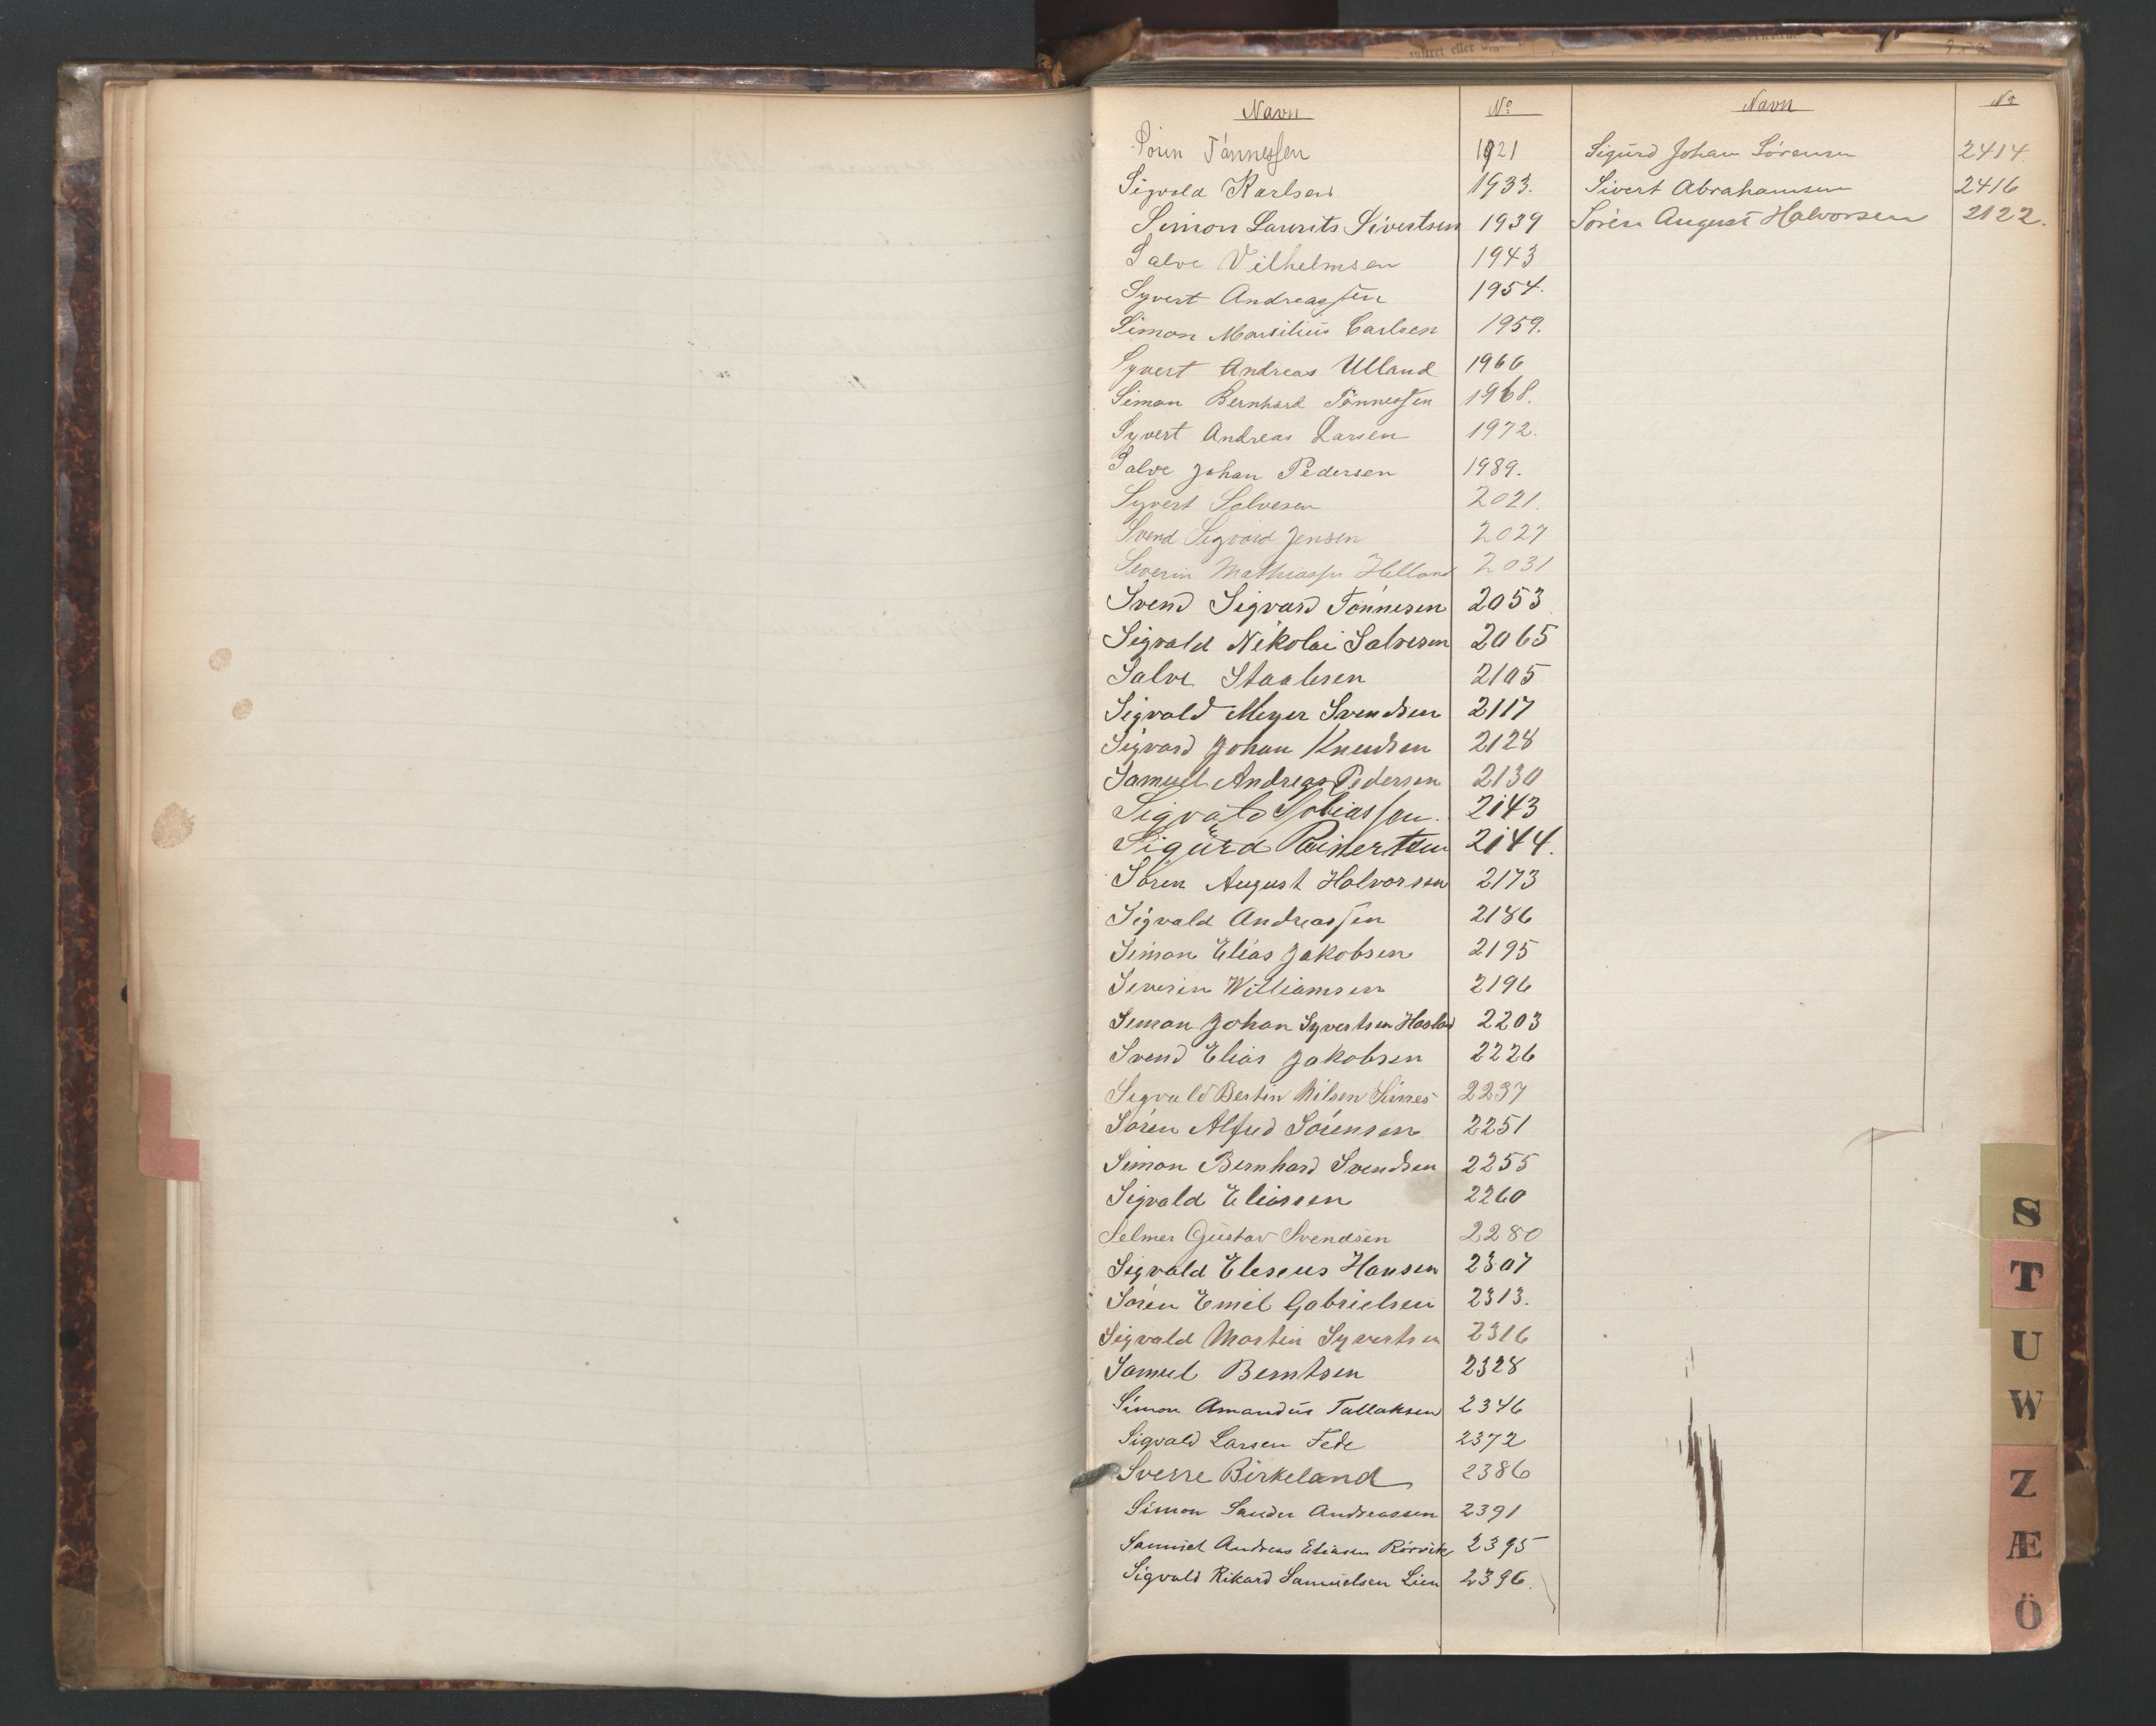 Navn Nº
Sörin Tönnessen 1921
Sigvald Karlsen 1933.
Simon Laurits Sivertsen 1939
Salve Vilhelmsen 1943
Syvert Andreassen 1954.
Simon Marsilius Carlsen 1959.
Syvert Andreas Ulland 1966
Simon Bernhard Tönnessen 1968.
Syvert Andreas Larsen 1972.
Salve Johan Pedersen 1989.
Syvert Salvesen 2021.
Svend Sigvard Jensen 2027
Severin Mathiassen Helland 2031
Svend Sigvard Tönnesen 2053
Sigvald Nikolai Salvesen 2065
Salve Staalesen 2105
Sigvald Meyer Svendsen 2117
Sigvard Johan Knudsen 2128
Samuel Andreas Pedersen 2130
Sigvald Tobiassen. 2143
Sigurd Reinertsen 2144.
Sören August Halvorsen 2173
Sigvald Andreassen 2186
Simon Elias Jakobsen 2195
Severin Williamsen 2196
Simon Johan Syvertsen 2203
Svend Elias Jakobsen 2226
Sigvald Bertin Nilsen 2237
Sören Alfred Sörensen 2251
Simon Bernhard Svendsen 2255
Sigvald Eliassen 2260
Selmer Gustav Svendsen 2280
Sigvald Eleseus Hansen 2307
Sören Emil Gabrielsen 2313.
Sigvald Martin Syvertsen 2316
Samuel Berntsen 2328
Simon Amandus Tallaksen 2346
Sigvald Larsen Fede 2372
Sverre Birkeland 2386
Simon Sander Andreassen 2391
Samuel Andreas Eliasen Rörvik 2395
Sigvald Rikard Samuelsen Lien 2396.
Navn Nº
Sigurd Johan Sörensen 2414.
Sivert Abrahamsen 2416
Sören August Halvorsen 2122.
S
T
U
W
Z
Æ
Ö